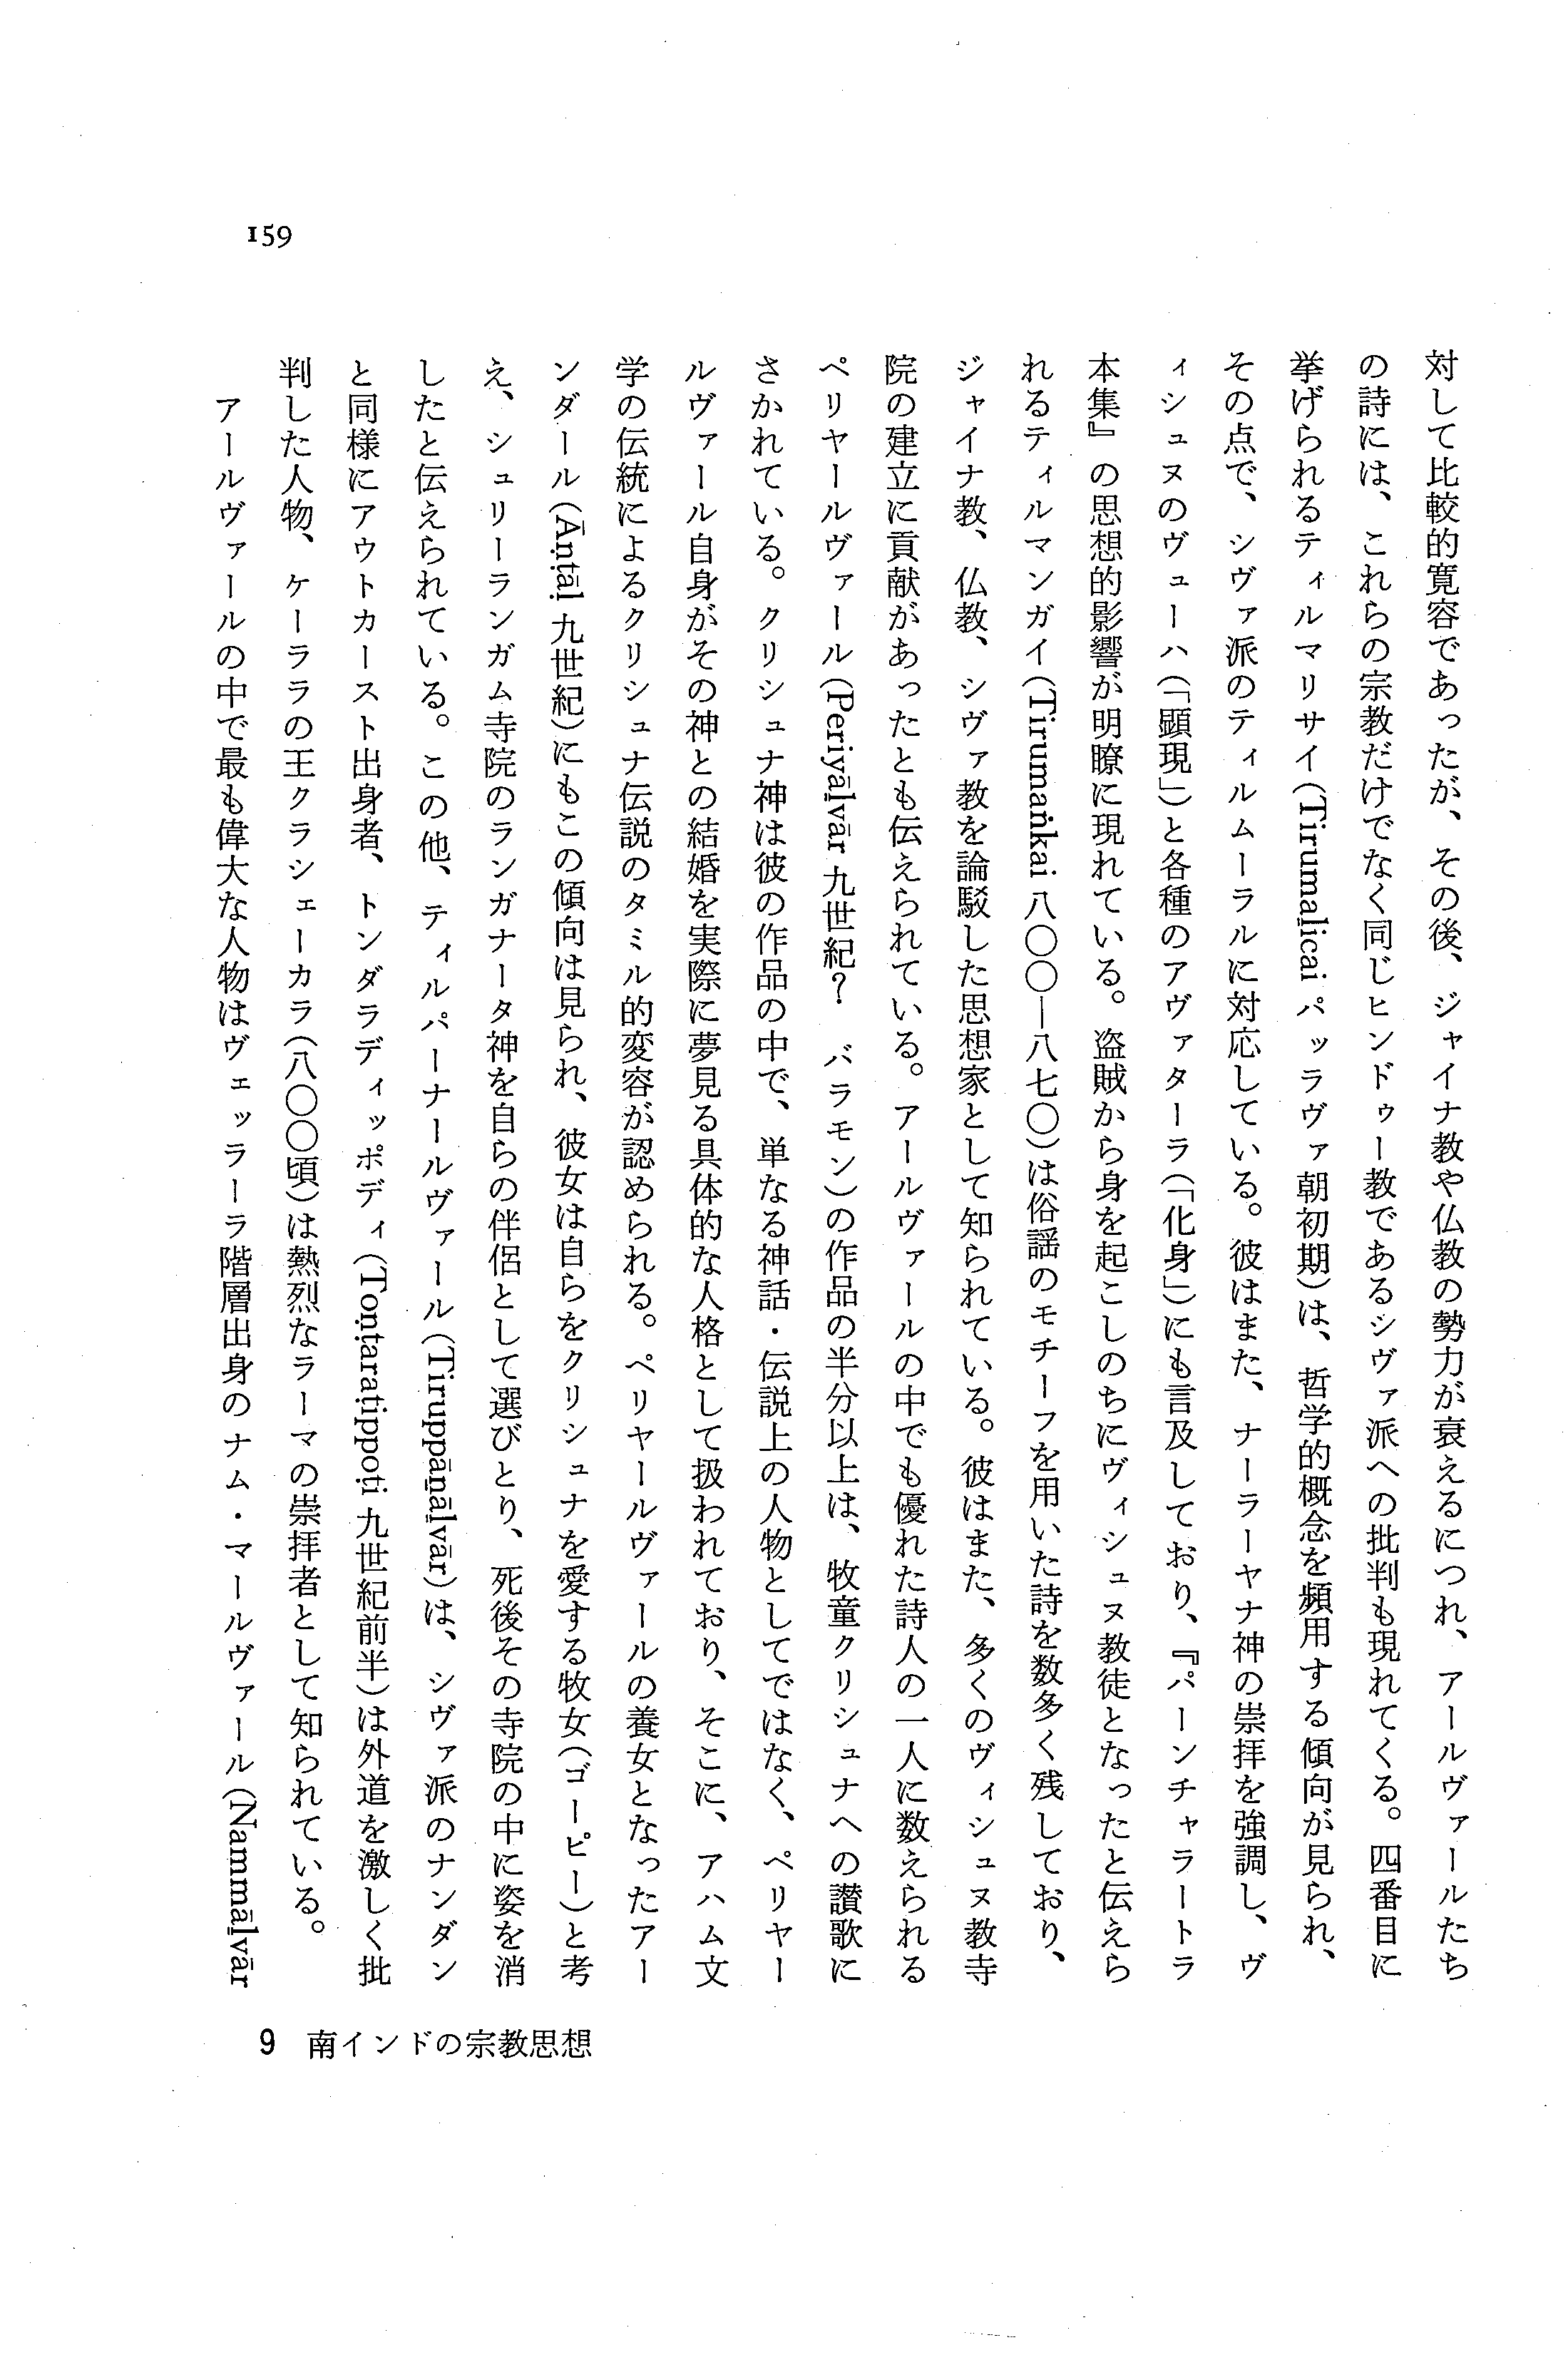 対して比較的寛容であったが、その後、ジャイナ教や仏教の勢力が衰えるにつれ、アールヴァールたち
の詩には、これらの宗教だけでなく同じヒンドゥー教であるシヴァ派への批判も現れてくる。四番目に
挙げられるティルマリサイ(Tirumaḻicai パッラヴァ朝初期)は、哲学的概念を頻用する傾向が見られ、
その点で、シヴァ派のティルムーラルに対応している。彼はまた、ナーラーヤナ神の崇拝を強調し、ヴ
ィシュヌのヴューハ(「顕現」)と各種のアヴァターラ(「化身」)にも言及しており、『パーンチャラートラ
本集』の思想的影響が明瞭に現れている。盗賊から身を起こしのちにヴィシュヌ教徒となったと伝えら
れるティルマンガイ(Tirumaṅkai 八〇〇―八七〇)は俗謡のモチーフを用いた詩を数多く残しており、
ジャイナ教、仏教、シヴァ教を論駁した思想家として知られている。彼はまた、多くのヴィシュヌ教寺
院の建立に貢献があったとも伝えられている。アールヴァールの中でも優れた詩人の一人に数えられる
ペリヤールヴァール(Periyāḻvār 九世紀? バラモン)の作品の半分以上は、牧童クリシュナへの讃歌に
さかれている。クリシュナ神は彼の作品の中で、単なる神話・伝説上の人物としてではなく、ペリヤー
ルヴァール自身がその神との結婚を実際に夢見る具体的な人格として扱われており、そこに、アハム文
学の伝統によるクリシュナ伝説のタミル的変容が認められる。ペリヤールヴァールの養女となったアー
ンダール(Āṇṭāḷ 九世紀)にもこの傾向は見られ、彼女は自らをクリシュナを愛する牧女(ゴーピー)と考
え、シュリーランガム寺院のランガナータ神を自らの伴侶として選びとり、死後その寺院の中に姿を消
したと伝えられている。この他、ティルパーナールヴァール(Tiruppāṇāḻvār)は、シヴァ派のナンダン
と同様にアウトカースト出身者、トンダラディッポディ(Toṇṭaraṭippoṭi 九世紀前半)は外道を激しく批
判した人物、ケーララの王クラシェーカラ(八〇〇頃)は熱烈なラーマの崇拝者として知られている。
アールヴァールの中で最も偉大な人物はヴェッラーラ階層出身のナム・マールヴァール(Nammāḻvār
159
9 南インドの宗教思想